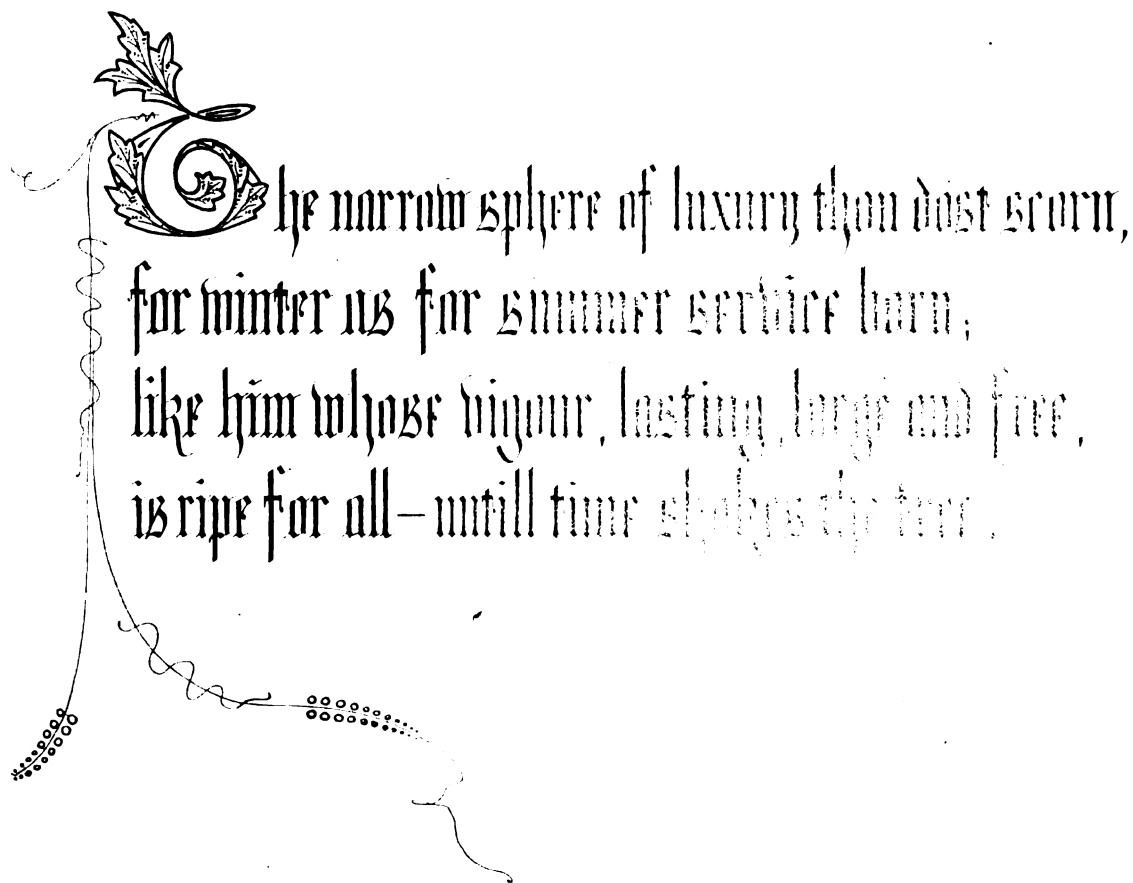 The narrow sphere of luxury thou dost scorn,
for winter as for summer service born;
like him whose vigour, lasting, large and free,
is ripe for all—untill time shakes the tree.